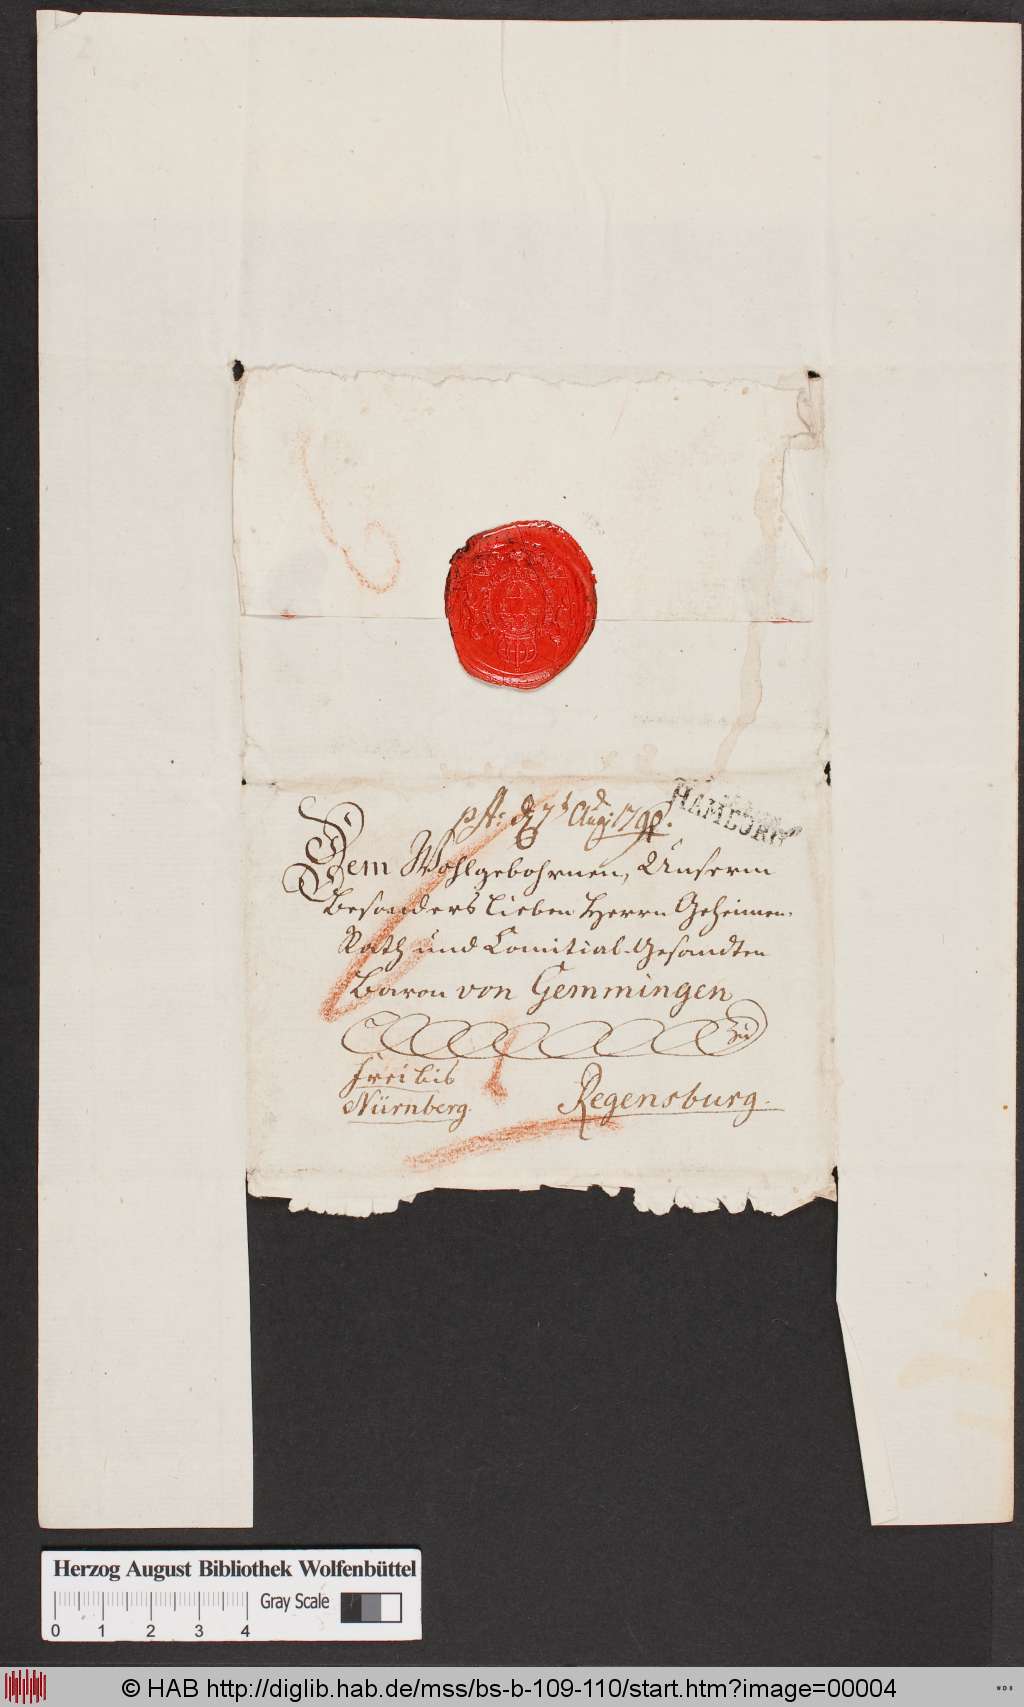 HAMBURG
pst: d 7t Aug: 1790.
Dem Wohlgebohrnen, Unserm
besonders lieben Herrn Geheimen-
Rath und Comitial-Gesandten
Baron von Gemmingen
zu
frei bis
Nürnberg.
Regensburg.
Herzog August Bibliothek Wolfenbüttel
Gray Scale
0 1 2 3 4
© HAB http://diglib.hab.de/mss/bs-b-109-110/start.htm?image=00004